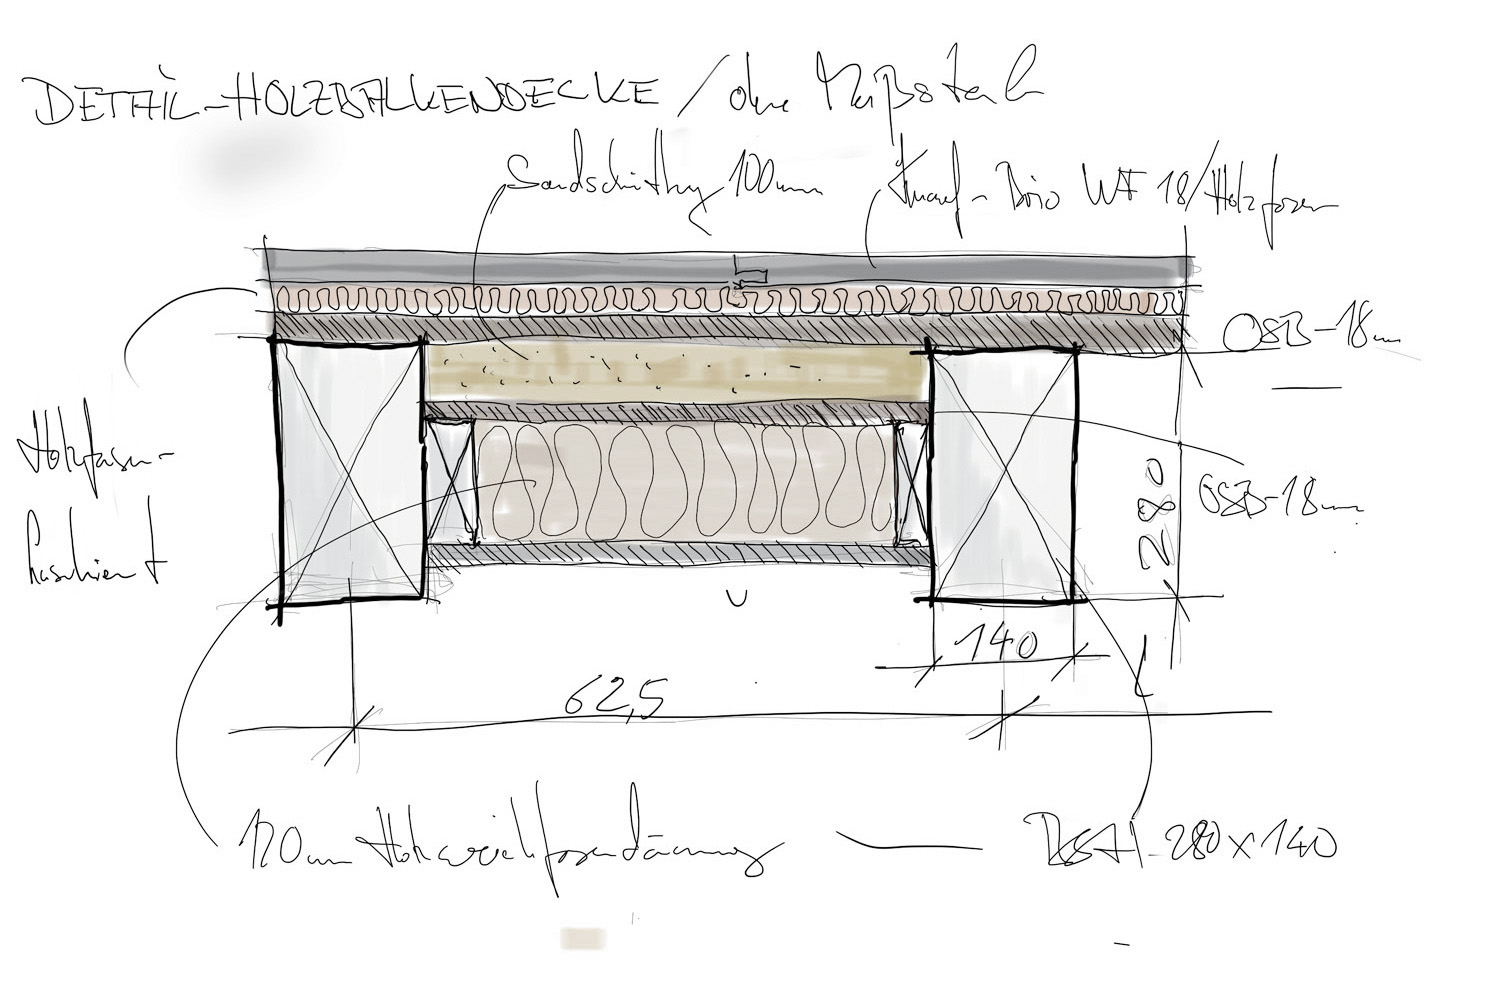 DETAIL-HOLZBALKENDECKE / ohne Maßstab
Sandschüttung 100mm
Knauf-Brio WF 18/Holzfaser
OSB-18mm
Holzfaser-
kaschiert
OSB-18mm
280
140
62,5
120mm Holzweichfaserdämmung
BSH-280x140